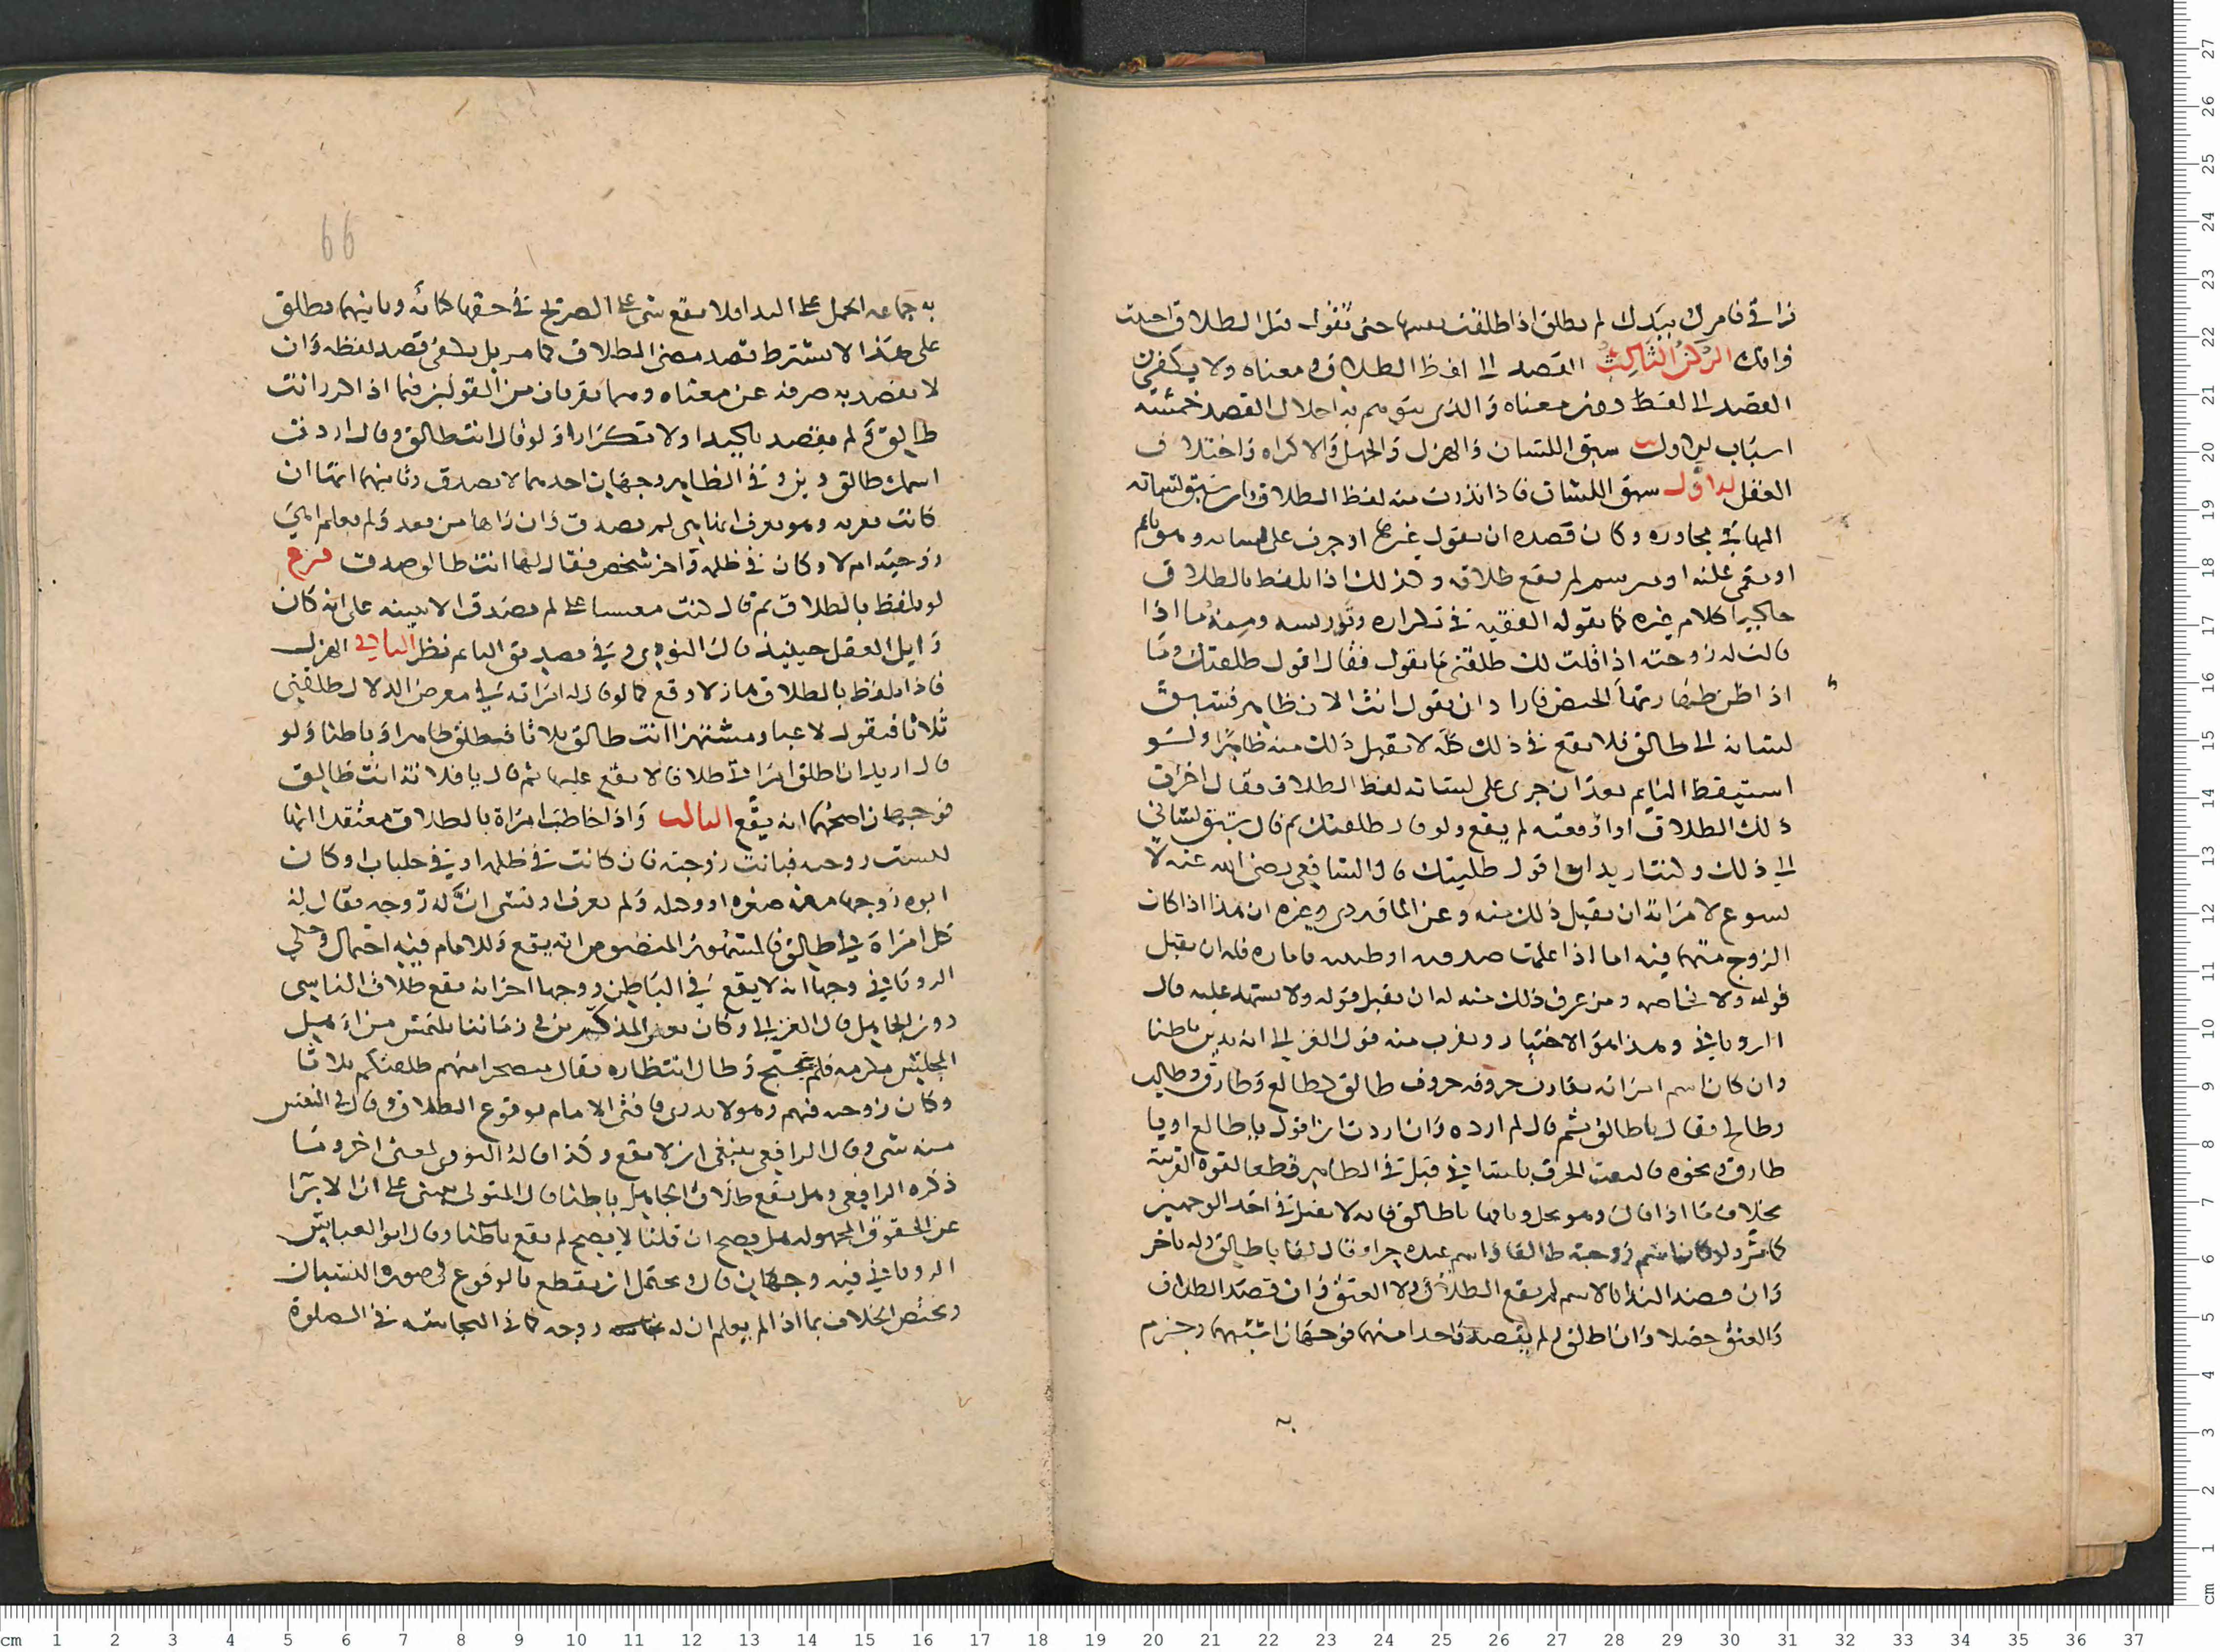 زاق فامرك بيدك لم يطلق اذا طلقت نفسها حتى تقول قبل الطلاق اخترت
فراقك الركن الثالث القصد الى لفظ الطلاق ومعناه ولا يكفي
القصد الى لفظ دون معناه والذي يتوهم به اختلال القصد خمسة
اسباب سبق اللسان والهزل والجهل والاكراه واختلال
العقل الاول سبق اللسان فاذا بدرت منه لفظ الطلاق بان سبق لسانه
اليها في محاوره وكان قصده ان يقول غيرها او جرت على لسانه وهو نائم
او مغمى عليه او مبرسم لم يقع طلاقه وكذلك اذا تلفظ بالطلاق
حاكيا كلام غيره كما يقوله الفقيه في تكراره وتدريسه ومنه ما اذا
قالت له زوجته اذا قلت لك طلقني ما تقول فقال اقول طلقتك وما
اذا ظن طهارتها الحيض فاراد ان يقول انت الان طاهر فسبق
لسانه الى طالق فلا يقع في ذلك كله لا تقبل ذلك منه ظاهرا ولو
استيقظ النايم بعد ان جرى على لسانه لفظ الطلاق فقال اجزت
ذلك الطلاق او اوقعته لم يقع ولو قال طلقتك ثم قال سبق لساني
الى ذلك وكنت اريد ان اقول طلبتك قال الشافعي رضي الله عنه لا
يسوغ لامراته ان تقبل ذلك منه وعن الماوردي وغيره ان هذا اذا كان
الزوج متهما فيه اما اذا علمت صدقه او ظنته بامارة فلها ان تقبل
قوله ولا تخاصمه ومن عرف ذلك منه له ان يقبل قوله ولا يشهد عليه قال
الروياني وهذا هو الاختيار ويقرب منه قول الغزالي انه يدين باطنا
وان كان اسم امراته يقارب حروفه حروف طالق كطالع وطارق وطالب
وطالح فقال يا طالق ثم قال لم ارده وانا اردت ان اقول يا طالع او يا
طارق ونحوه فالتفت الحرف بلساني قبل في الظاهر قطعا لقوة القرينة
بخلاف ما اذا قال وهو يحل وثاقها يا طالق فانه لا يقبل في احد الوجهين
كما مر ولو كان اسم زوجته طالقا واسم عبده حرا وقال لها يا طالق وله يا حر
وان قصد النداء بالاسم لم يقع الطلاق ولا العتق وان قصد الطلاق
والعتق حصلا وان اطلق لم يقصد واحدا منهما فوجهان اشبههما وجزم
به
66
به جماعه الحمل على النداء فلا يقع شي على الصريح في حقهما كانه وثانيهما يطلق
على هذا لا يشترط قصد معنى الطلاق كما مر بل يكفي قصد لفظه وان
لا يقصد به صرفه عن معناه وهما يقربان من القولين فيما اذا كرر انت
طالق ولم يقصد تاكيدا ولا تكرارا ولو قال انت طالق وقال اردت
اسمك طالق دين وفي الظاهر وجهان احدهما لا يصدق وثانيهما انها ان
كانت تعرف وهو يعرف انها هي لم يصدق وان راها من بعد ولم يعلم اهي
زوجته ام لا وكان في ظلمة واخر شخص فقال لها انت طالق صدق فرع
لو تلفظ بالطلاق ثم قال كنت مغشيا علي لم يصدق الا ببينه على انه كان
زايل العقل حينيذ قال النووي وفي تصديق النايم نظر الثاني الهزل
فاذا تلفظ بالطلاق هازلا وقع كما لو قال له امراته في معرض الدلال طلقني
ثلاثا فيقول لاعبا ومستهزا انت طالق ثلاثا فتطلق ظاهرا وباطنا ولو
قال اريد ان اطلق امراتي طلاقا لا يقع عليها ثم قال يا فلانة انت طالق
فوجهان اصحهما انه يقع الثالث واذا خاطب امراة بالطلاق معتقدا انها
ليست زوجته فبانت زوجته فان كانت في ظلمه او في جلباب او كان
ابوه زوجها منه صغره او وكله ولم يعرف او نسي ان له زوجة فقال له
كل امراة لي طالق فالمشهور المنصوص انه يقع وللامام فيه احتمال وحكى
الروياني وجها انه لا يقع في الباطن ووجها اخر انه يقع طلاق الناسي
دون الجاهل قال الغزالي وكان بعض المذكرين في زماننا يلتمس من اهل
المجلس مكرمه فلم ينجح وطال انتظاره فقال متضجرا منهم طلقتكم ثلاثا
وكان زوجته فيهم وهو لا يدري فافتى الامام بوقوع الطلاق وقال في النفس
منه شي وقال الرافعي ينبغي ان لا يقع وكذا قاله النووي لمعنى اخر وما
ذكره الرافعي وهل يقع طلاق الجاهل باطنا قال المتولي يبنى على ان الابرا
عن الحقوق المجهوله هل يصح ان قلنا لا يصح لم يقع باطنا وقال ابو العباس
الروياني فيه وجهان قال ويحتمل ان يقطع بالوقوع في صورة النسيان
ويختص الخلاف بما اذا لم يعلم ان له زوجه كما في النجاسة في الصلوة